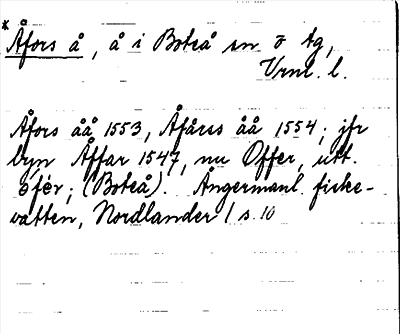 * Åfors å, å i Boteå sn o tg,
Vrml. l.
Åfors åå 1553, Åfårss åå 1554; jfr
byn Åffar 1547, nu Offer, utt.
òfér; (Boteå). Ångermanl. fiske-
vatten, Nordlander 1 s. 10